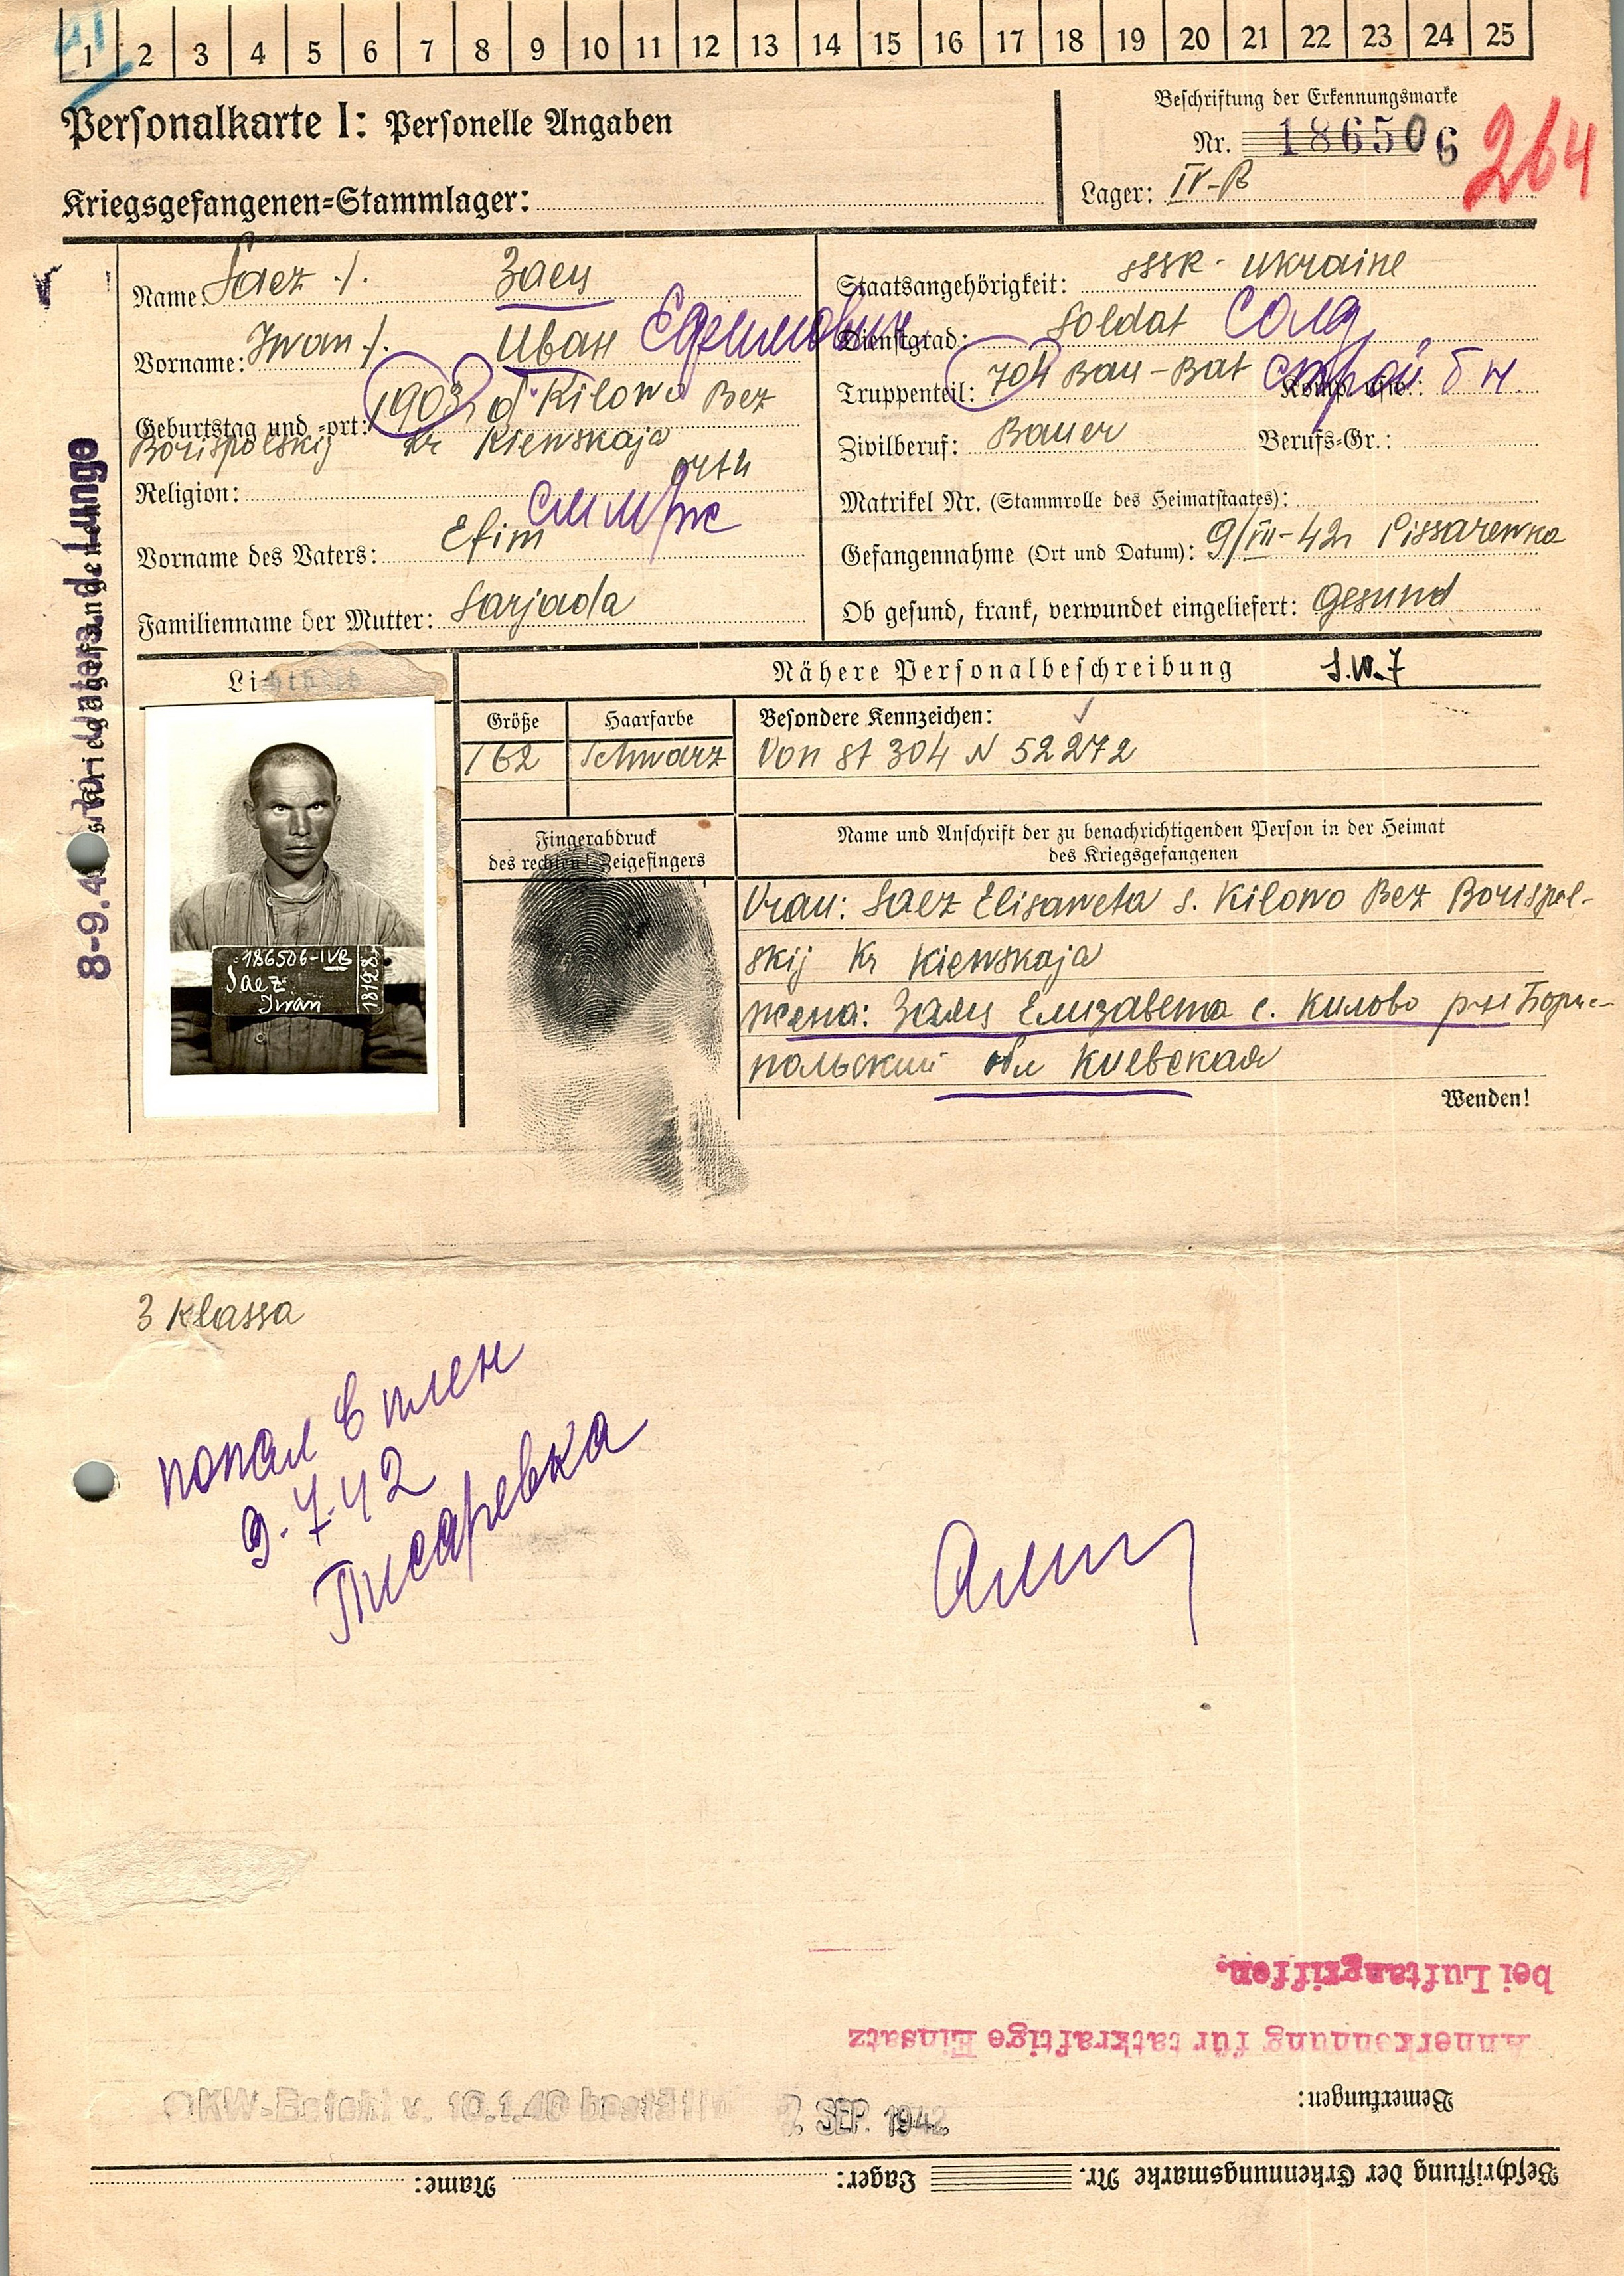 1 2 3 4 5 6 7 8 9 10 11 12 13 14 15 16 17 18 19 20 21 22 23 24 25
Personalkarte I: Personelle Angaben
Beschriftung der Erkennungsmarke
Nr. 186506
264
Kriegsgefangenen=Stammlager:
Lager: IV-B
Name: Saez ./. Заец
Staatsangehörigkeit: SSSR - Ukraine
Vorname: Iwan ./. Иван
Dienstgrad: Soldat Солд
Truppenteil: 704 Bau-Bat
Geburtstag und =ort: 1903, d. Kilowo Bez
Borispolskij kr Kiewskaja
Zivilberuf: Bauer Berufs=Gr.:
Religion: orth
Matrikel Nr. (Stammrolle des Heimatstaates):
Vorname des Vaters: Efim
Gefangennahme (Ort und Datum): 9/VII-42, Pissarewka
Familienname der Mutter: Sarjada
Ob gesund, krank, verwundet eingeliefert: gesund
Lichtbild
Nähere Personalbeschreibung S.W.7
Größe Haarfarbe Besondere Kennzeichen:
162 Schwarz Von St 304 N 52272
Fingerabdruck
des rechten Zeigefingers
Name und Anschrift der zu benachrichtigenden Person in der Heimat
des Kriegsgefangenen
Vrau: Saez Elisaweta s. Kilowo Bez Borispol-
skij Kr Kiewskaja
жена: Заец Елизавета с. Килово р-н Борис-
польский обл Киевская
Wenden!
186506-IVB
Saez
Iwan
3 Klassa
попал в плен
9.7.42
Писаревка
bei Luftangriffen.
Anerkennung für tatkräftige Einsatz
Bemerkungen:
OKW-Befehl v. 10.1.40
SEP. 1942
Beschriftung der Erkennungsmarke Nr. Lager: Name: